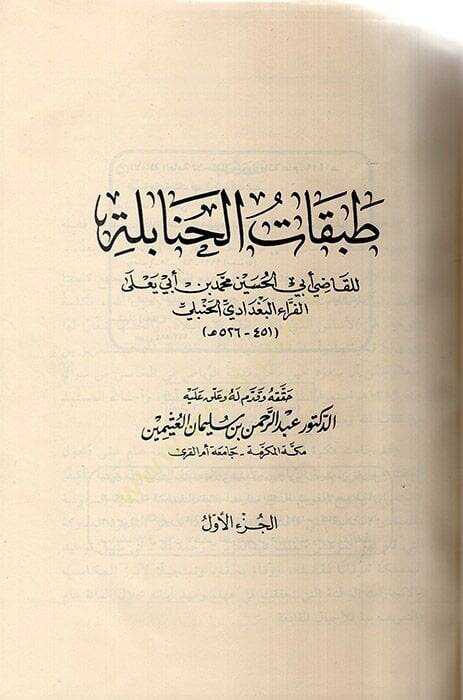 طبقات الحنابلة
للقاضي أبي الحسين محمد بن أبي يعلى
الفراء البغدادي الحنبلي
(٤٥١ - ٥٢٦ هـ)
حققه وقدم له وعلق عليه
الدكتور عبد الرحمن بن سليمان العثيمين
مكة المكرمة - جامعة أم القرى
الجزء الأول